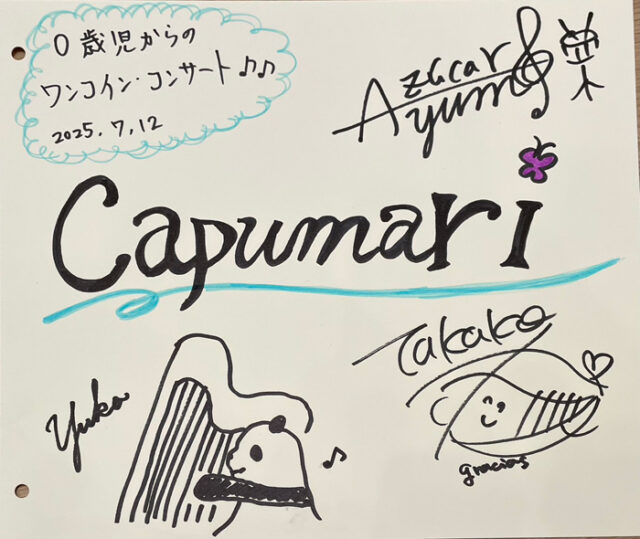 0歳児からの
ワンコイン・コンサート♪♪
2025.7.12
Azúcar
Ayumi
Capumari
Takako
Yuka
gracias